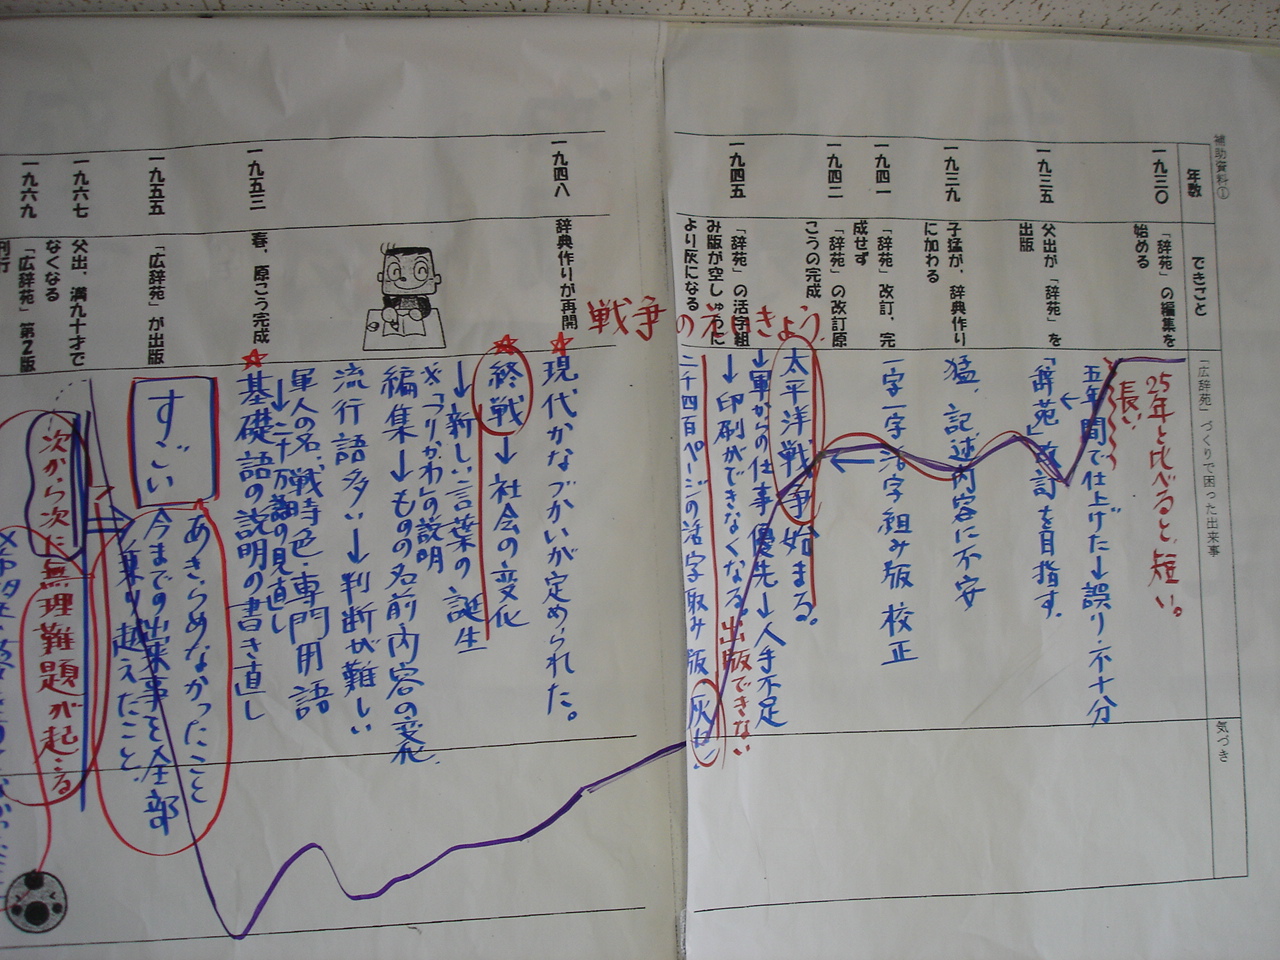 補助資料①
年数
できごと
「広辞苑」づくりで困った出来事
気づき
一九三〇
「辞苑」の編集を
始める
25年と比べると、短い。
長い
五年間で仕上げた→誤り・不十分
一九三五
父出が「辞苑」を
出版
「辞苑」改訂を目指す。
一九三九
子猛が、辞典作り
に加わる
猛、記述内容に不安
一九四一
「辞苑」改訂、完
成せず
一字一字活字組み版校正
一九四二
「辞苑」の改訂原
こうの完成
太平洋戦争始まる。
↓軍からの仕事優先→人手不足
一九四五
「辞苑」の活字組
み版が空しゅうに
より灰になる
→印刷ができなくなる。出版できない
二千四百ページの活字取み版
戦争の
一九四八
辞典作りが再開
現代かなづかいが定められた。
終戦→社会の変化
→新しい言葉の誕生
※「つりかわ」の説明
編集→ものの名前内容の変化
流行語多い→判断が難しい
軍人の名、戦時色・専門用語
一九五三
春、原こう完成
基礎語の説明の書き直し
一九五五
「広辞苑」が出版
すごい
あきらめなかったこと
今までの出来事を全部
乗り越えたこと。
一九六七
父出、満九十才で
なくなる
次から次に無理難題が起こる
一九六九
「広辞苑」第2版
刊行